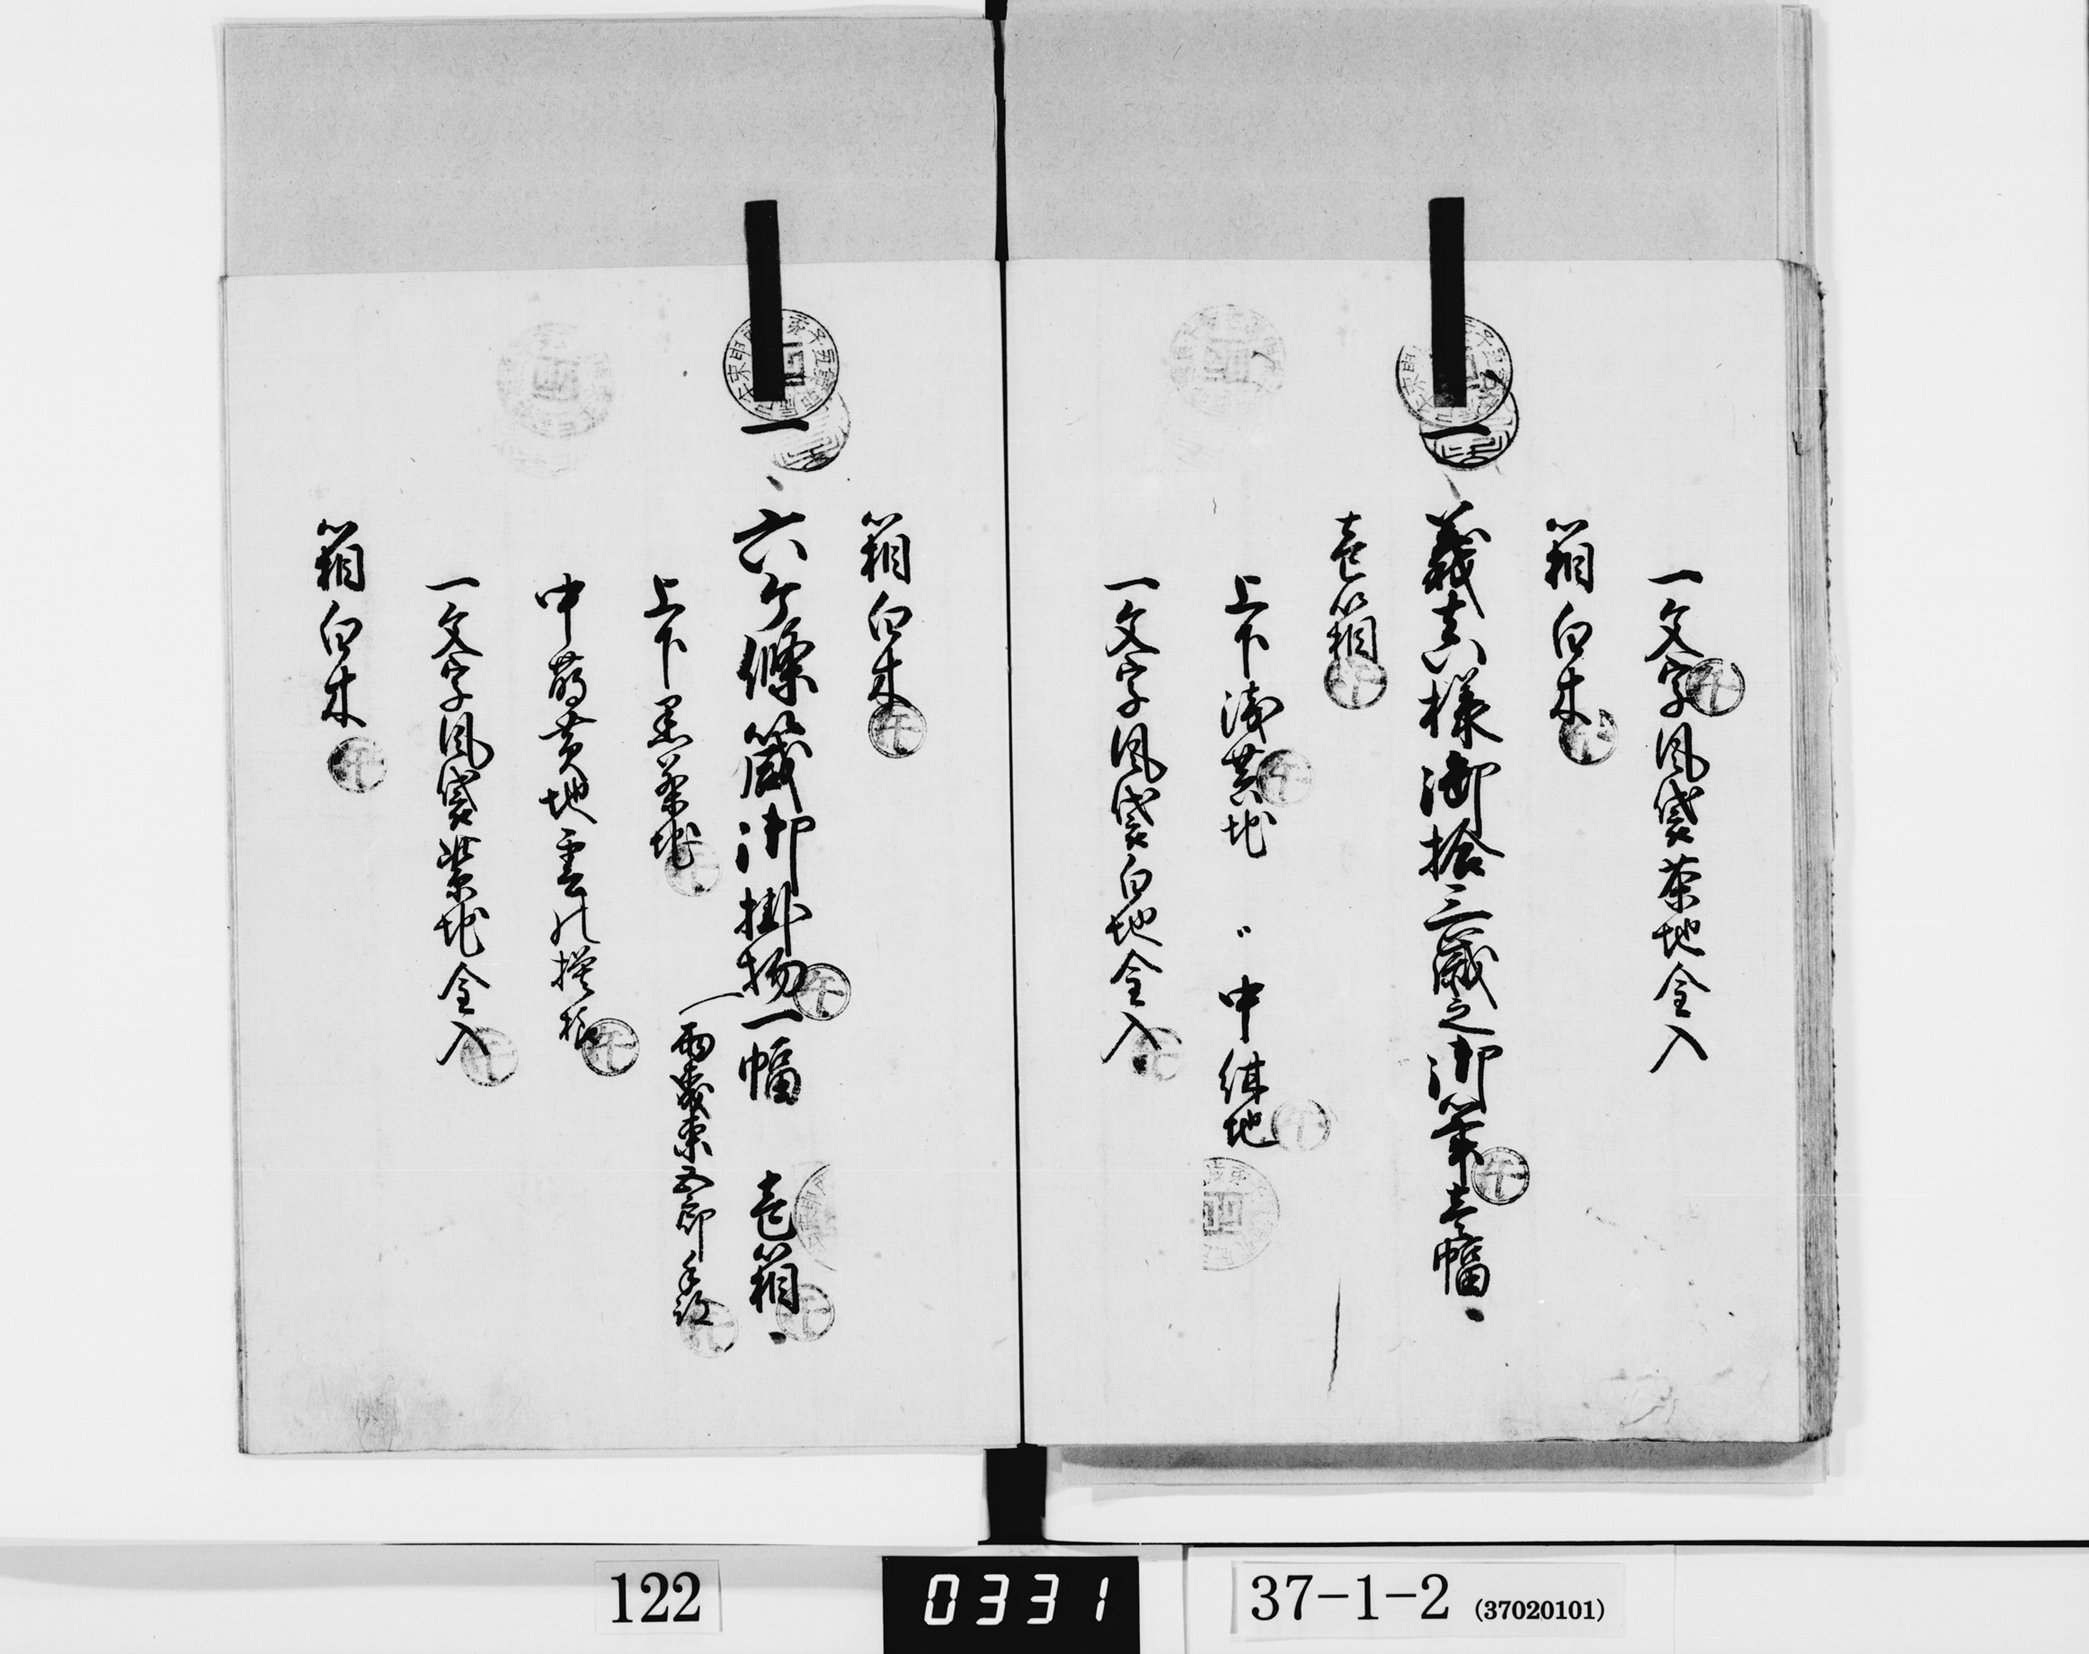 一文字風袋茶地金入
箱白木
一義真様御拾三歳之御筆壱幅
壱箱
上下浅黄地 中紺地
一文字風袋白地金入
箱白木
一六ケ條箴御掛物一幅 壱箱
上下黒茶地
中萌黄地雲に模様
一文字風袋紫地金入
箱白木
122
0331
37-1-2 (37020101)